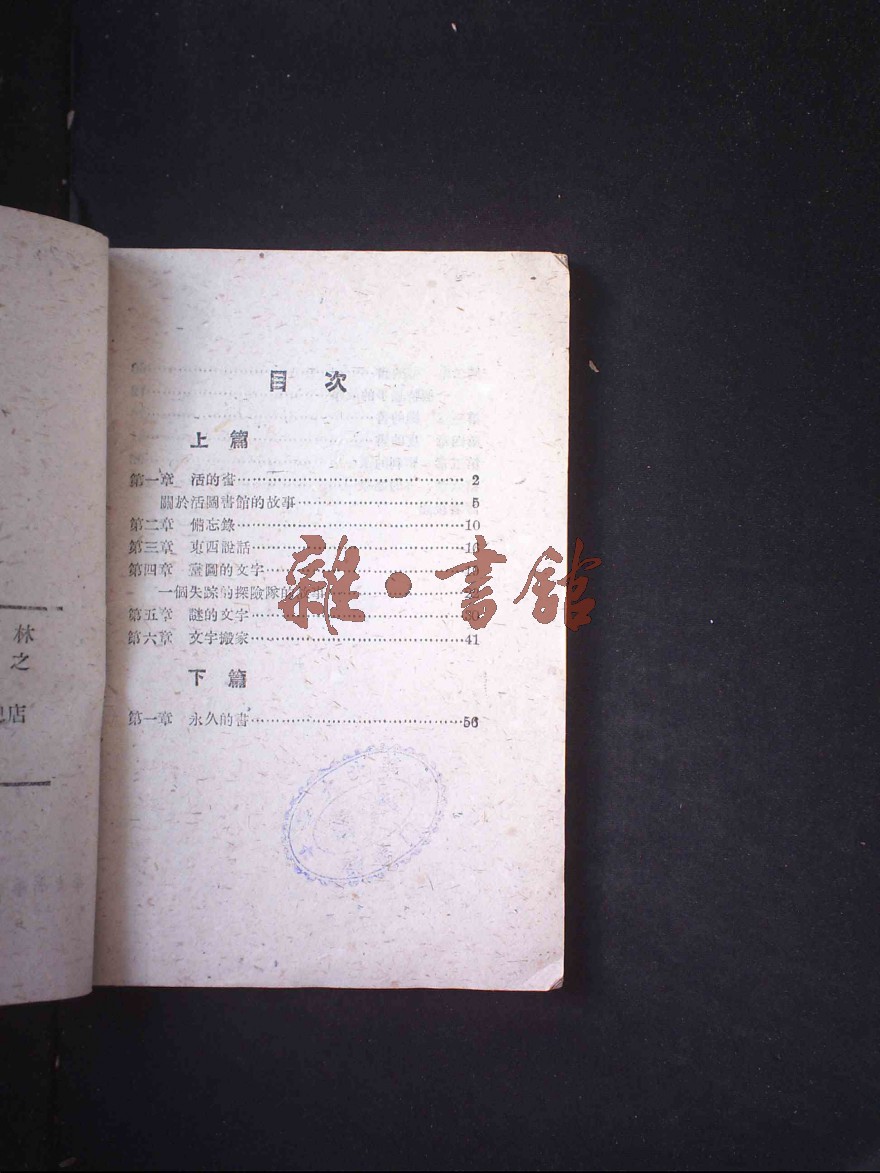 目次
上篇
第一章 活的書……2
關於活圖書館的故事……5
第二章 備忘錄……10
第三章 東西說話……
第四章 畫圖的文字……
一個失踪的探險隊的故事……
第五章 謎的文字……30
第六章 文字搬家……41
下篇
第一章 永久的書……56
雜·書館
林
之
店